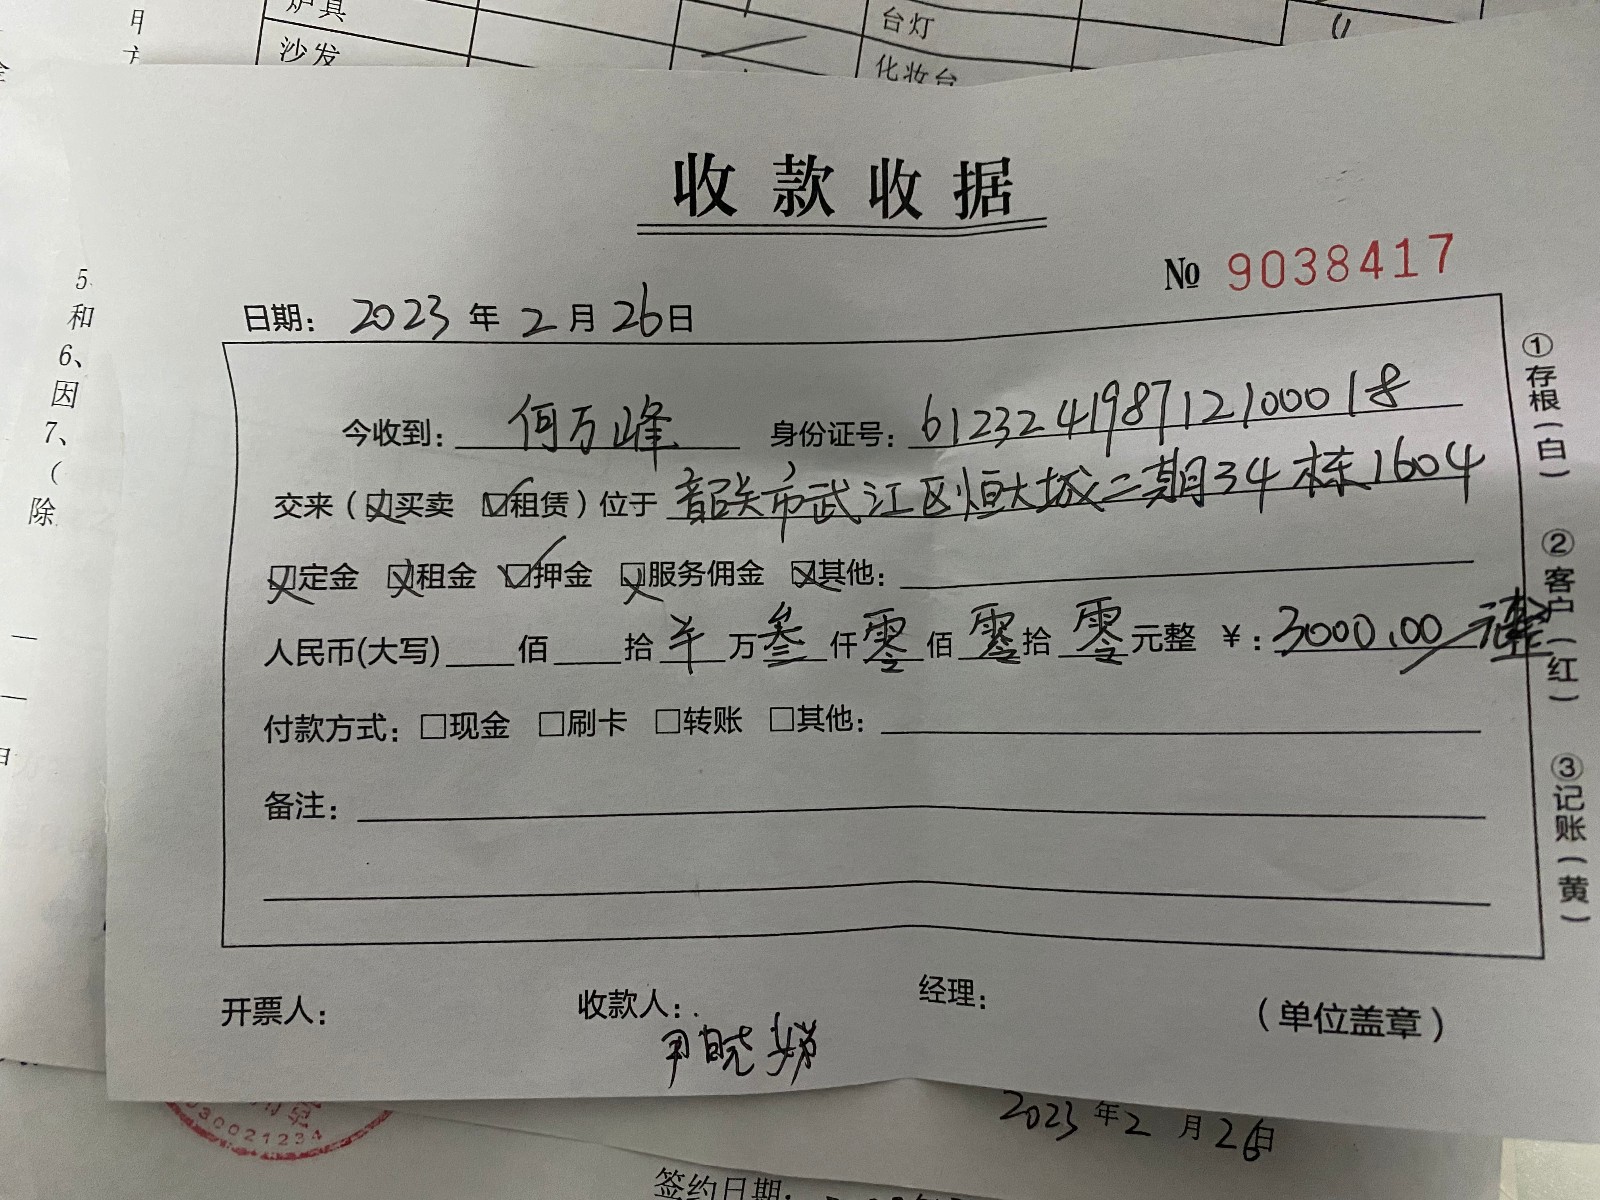 炉具
台灯
沙发
化妆台
收款收据
№ 9038417
日期: 2023 年 2 月 26 日
今收到: 何万峰 身份证号: 612324198712100018
交来（□买卖 ☑租赁）位于 韶关市武江区恒大城二期34栋1604
☒定金 ☒租金 ☑押金 ☒服务佣金 ☒其他:
人民币(大写) 佰 拾 万 叁 仟 零 佰 零 拾 零 元整 ¥: 3000.00 元整
付款方式: □现金 □刷卡 □转账 □其他:
备注:
开票人: 收款人: 尹晓 经理: （单位盖章）
①存根(白)
②客户(红)
③记账(黄)
5
和
6、
因
7、
(
除
30021234
2023 年 2 月 26 日
签约日期: